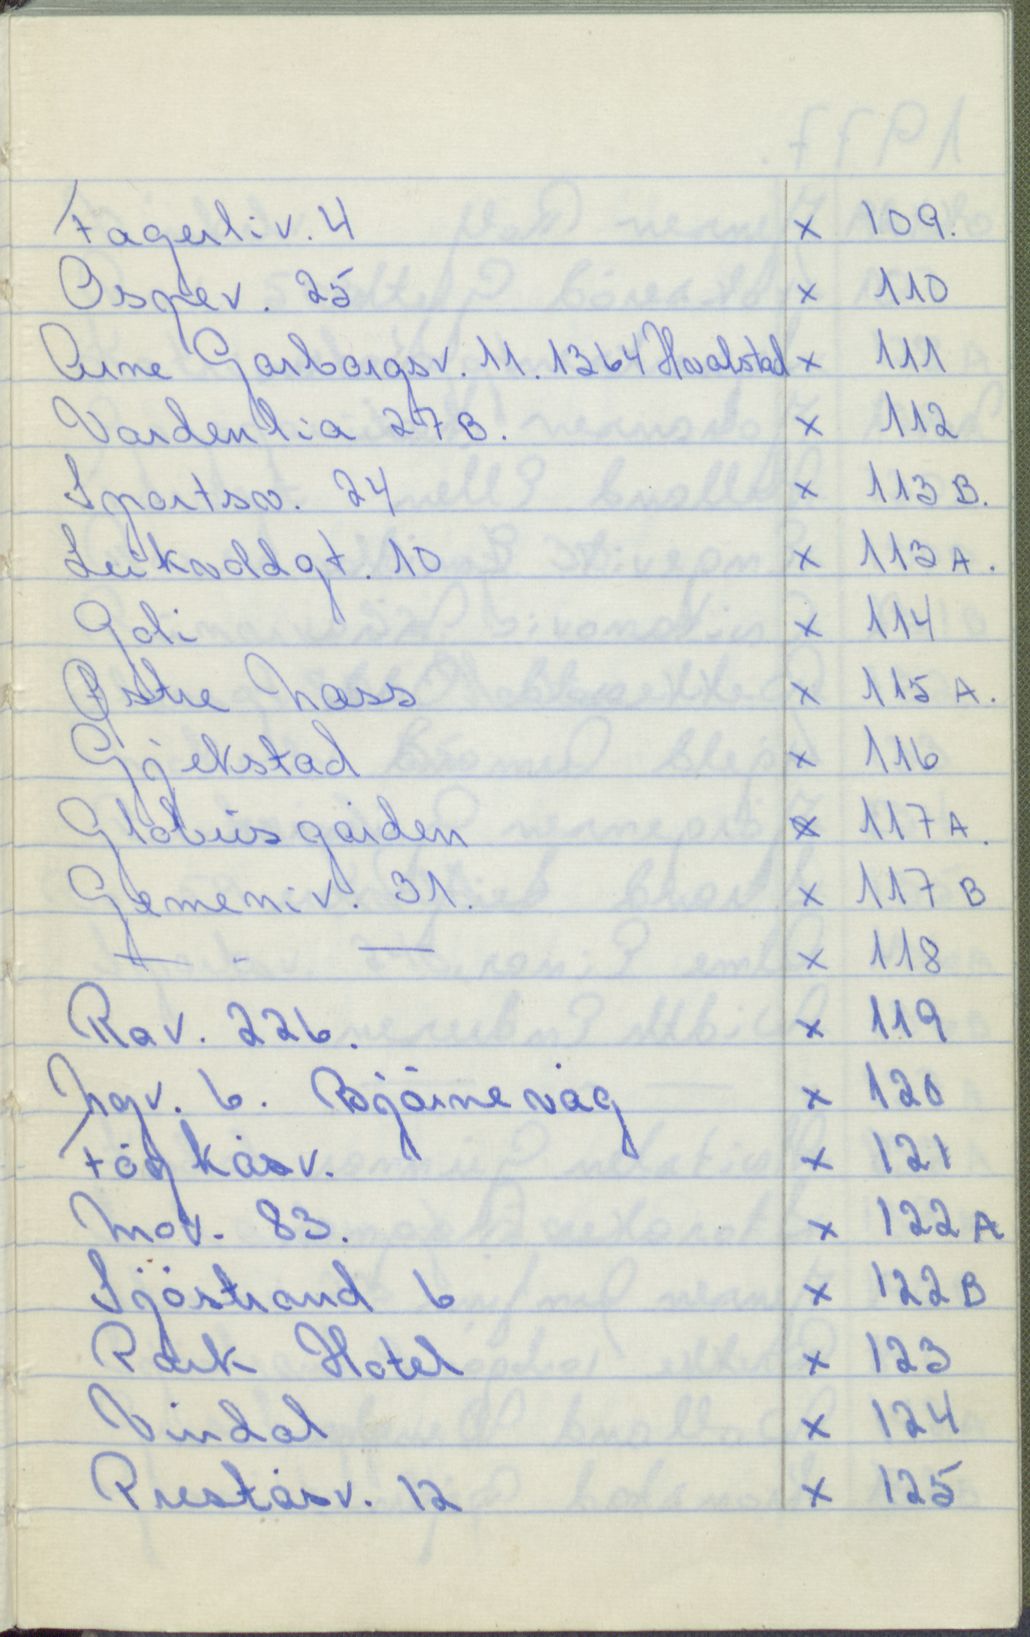 Fagerliv. 4 x 109.
Ospev. 25 x 110
Arne Garborgsv. 11. 1364 Hvalstad x 111
Vardenlia 27B. x 112
Sportsv. 24 x 113 B.
Leikvollgt. 10 x 113 A.
Goli x 114
Østre Moss x 115 A.
Gjekstad x 116
Globusgården x 117 A.
Gemeniv. 31. x 117 B
— " — x 118
Rav. 226. x 119
6. Bjørnevåg x 120
Fögkåsv. x 121
Mov. 83. x 122 A
Sjöstrand 6 x 122 B
Park Hotel x 123
Vindal x 124
Preståsv. 12 x 125